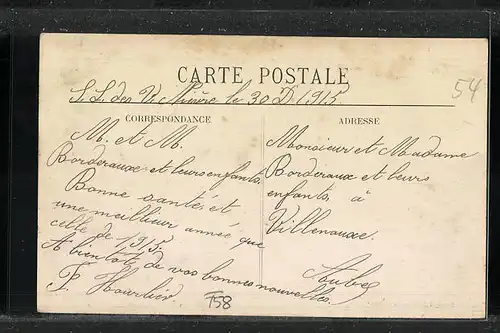 CARTE POSTALE
54
S. L. des V. Nièvre le 30 D. 1915
CORRESPONDANCE
M. et M.
Borderaux et leurs enfants,
Bonne santé, et
une meilleur année que
celle de 1915.
A bientôt de vos bonnes nouvelles.
F.
T58
ADRESSE
Monsieur et Madame
Borderaux et leurs
enfants, à
Villenauxe.
Aube